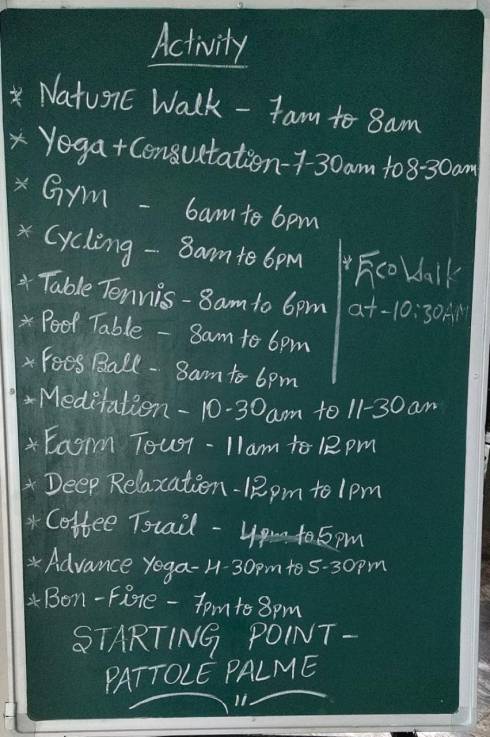 Activity
* Nature Walk - 7am to 8am
* Yoga + Consultation - 7-30am to 8-30am
* Gym - 6am to 6pm
* Cycling - 8am to 6PM
* Eco Walk
at - 10:30AM
* Table Tennis - 8am to 6pm
* Pool Table - 8am to 6pm
* Foos Ball - 8am to 6pm
* Meditation - 10-30am to 11-30am
* Farm Tour - 11am to 12pm
* Deep Relaxation - 12pm to 1pm
* Coffee Trail - 4pm to 5pm
* Advance Yoga - 4-30pm to 5-30pm
* Bon-Fire - 7pm to 8pm
STARTING POINT -
PATTOLE PALME
"